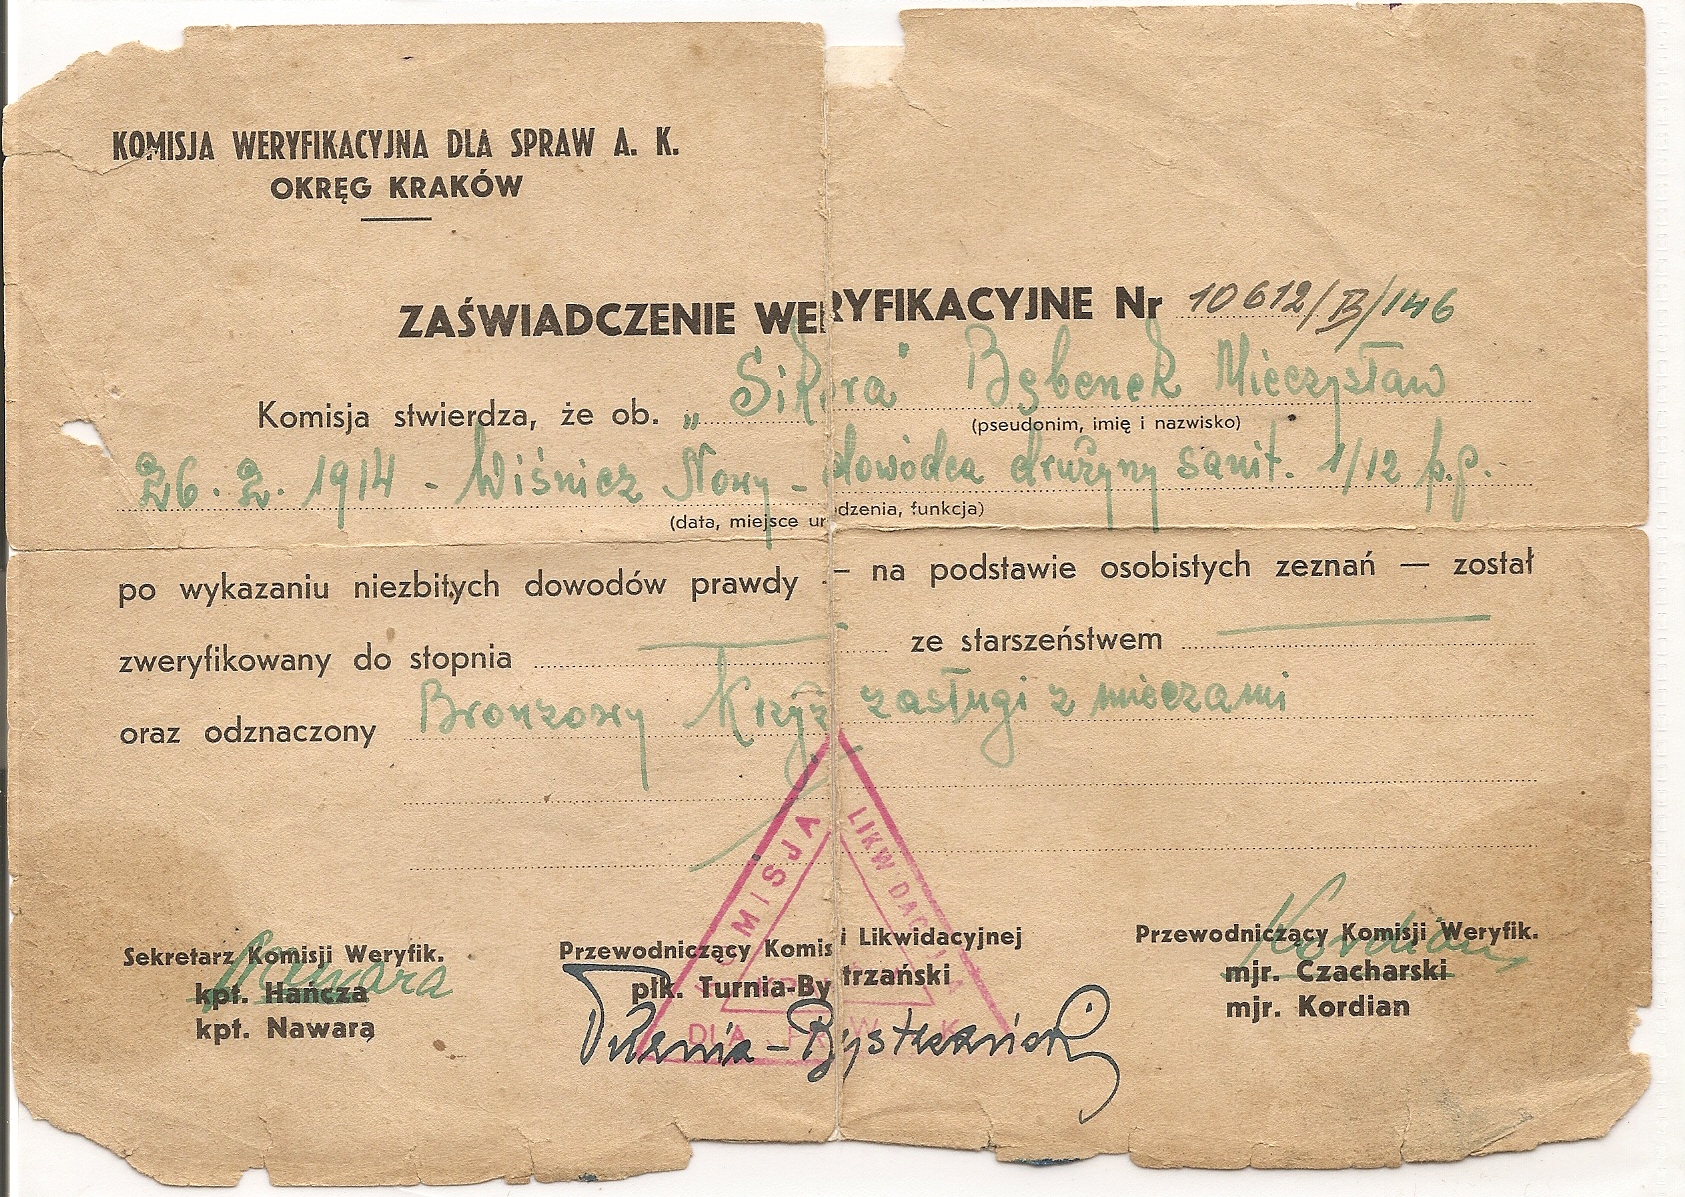 KOMISJA WERYFIKACYJNA DLA SPRAW A. K.
OKRĘG KRAKÓW
ZAŚWIADCZENIE WERYFIKACYJNE Nr 10612/IV/146
Komisja stwierdza, że ob. „Sikora" Bębenek Mieczysław
(pseudonim, imię i nazwisko)
26. 2. 1914 - Wiśnicz Nowy - dowódca drużyny sanit. 1/12 p.p.
(data, miejsce urodzenia, funkcja)
po wykazaniu niezbitych dowodów prawdy — na podstawie osobistych zeznań — został
zweryfikowany do stopnia ze starszeństwem
oraz odznaczony Bronzowy Krzyż zasługi z mieczami
KOMISJA LIKWIDACYJNA
DLA SPRAW A K
Sekretarz Komisji Weryfik.
kpt. Hańcza
kpt. Nawara
Nawara
Przewodniczący Komisji Likwidacyjnej
płk. Turnia-Bystrzański
Turnia-Bystrzański
Przewodniczący Komisji Weryfik.
mjr. Czacharski
mjr. Kordian
Kordian